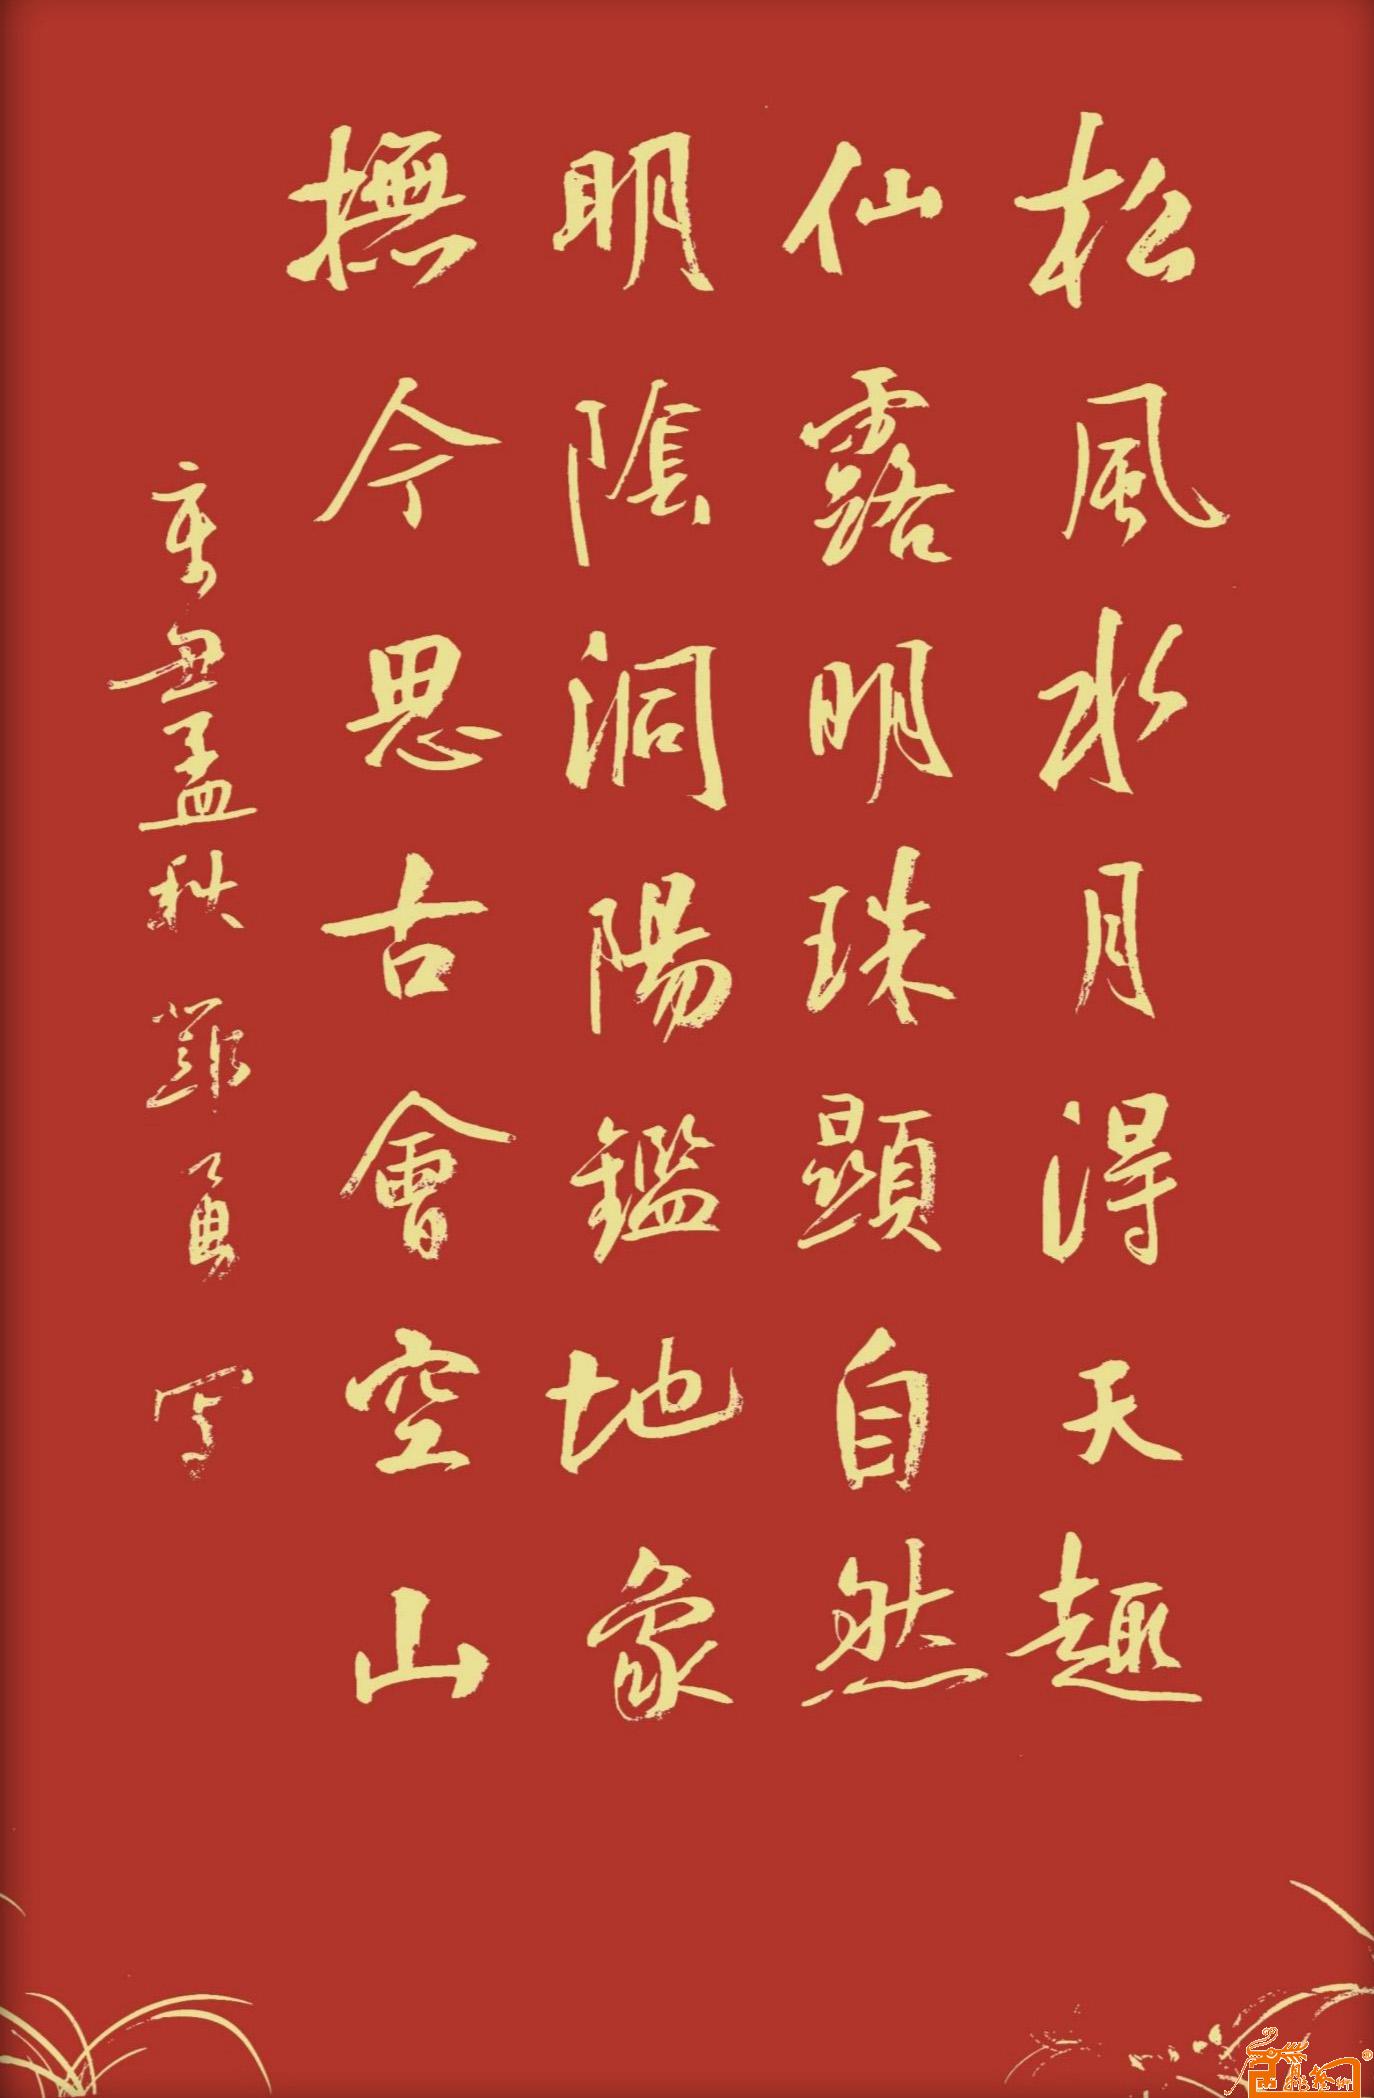 松風水月得天趣
仙露明珠顯自然
明陰洞陽鑑地象
撫今思古會空山
辛丑孟秋 鄭勇写